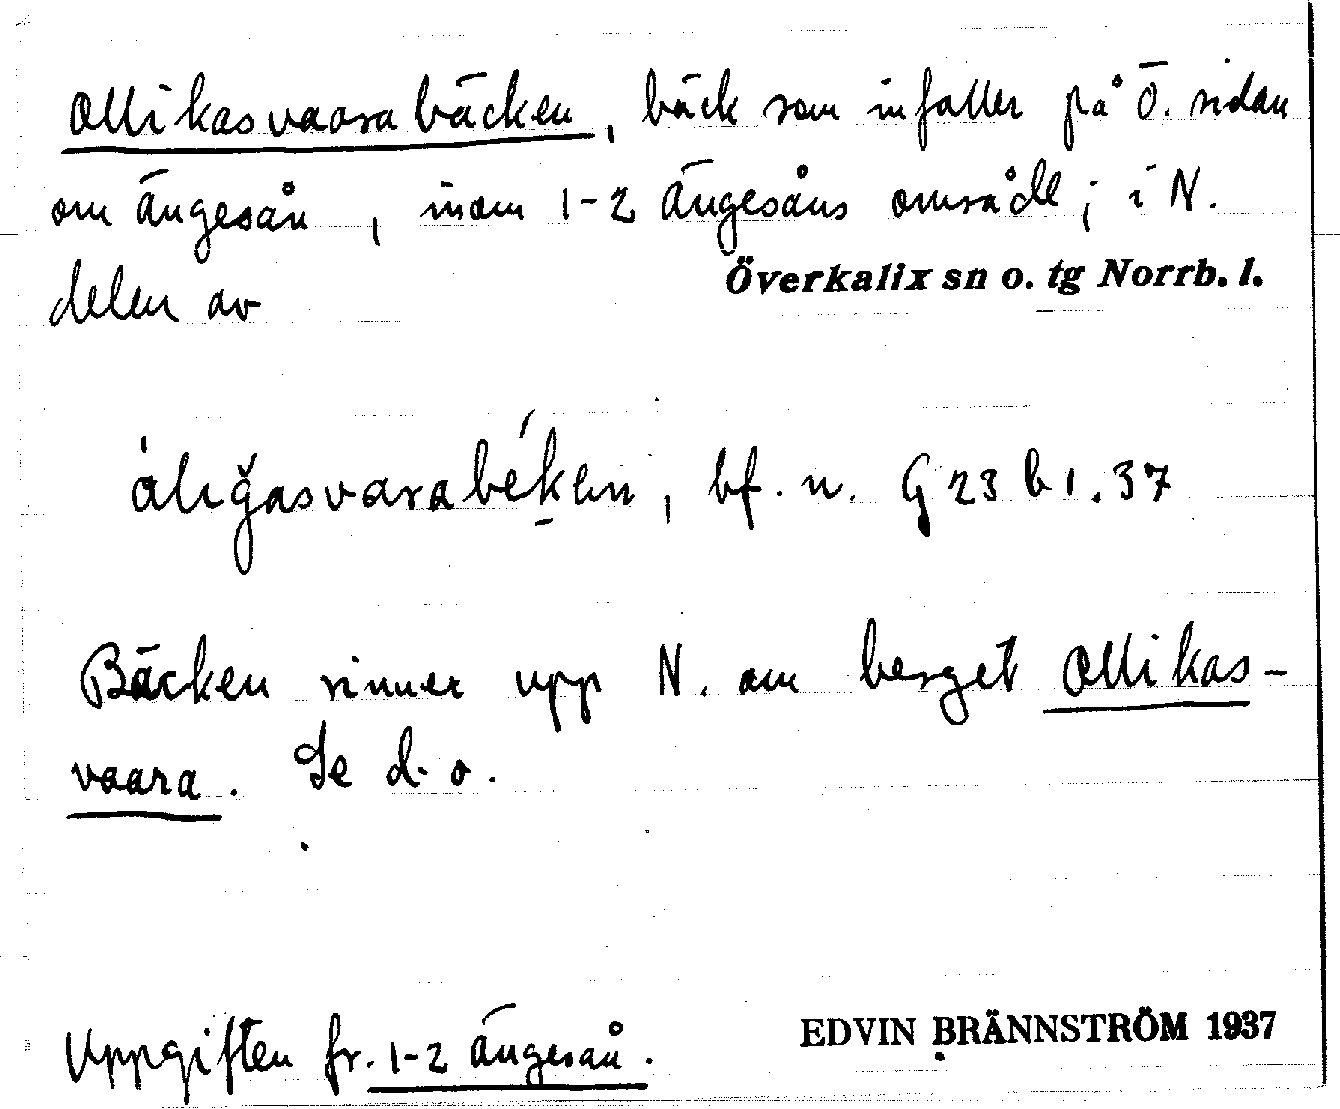 Ollikasvaarabäcken, bäck som infaller på Ö. sidan
om Ängesån, inom 1-2 Ängesåns område; i N.
delen av Överkalix sn o. tg Norrb. l.
bf. n. G 23 b 1. 37
Bäcken rinner upp N. om berget Ollikas-
vaara. Se d. o.
Uppgiften fr. 1-2 Ängesån. EDVIN BRÄNNSTRÖM 1937